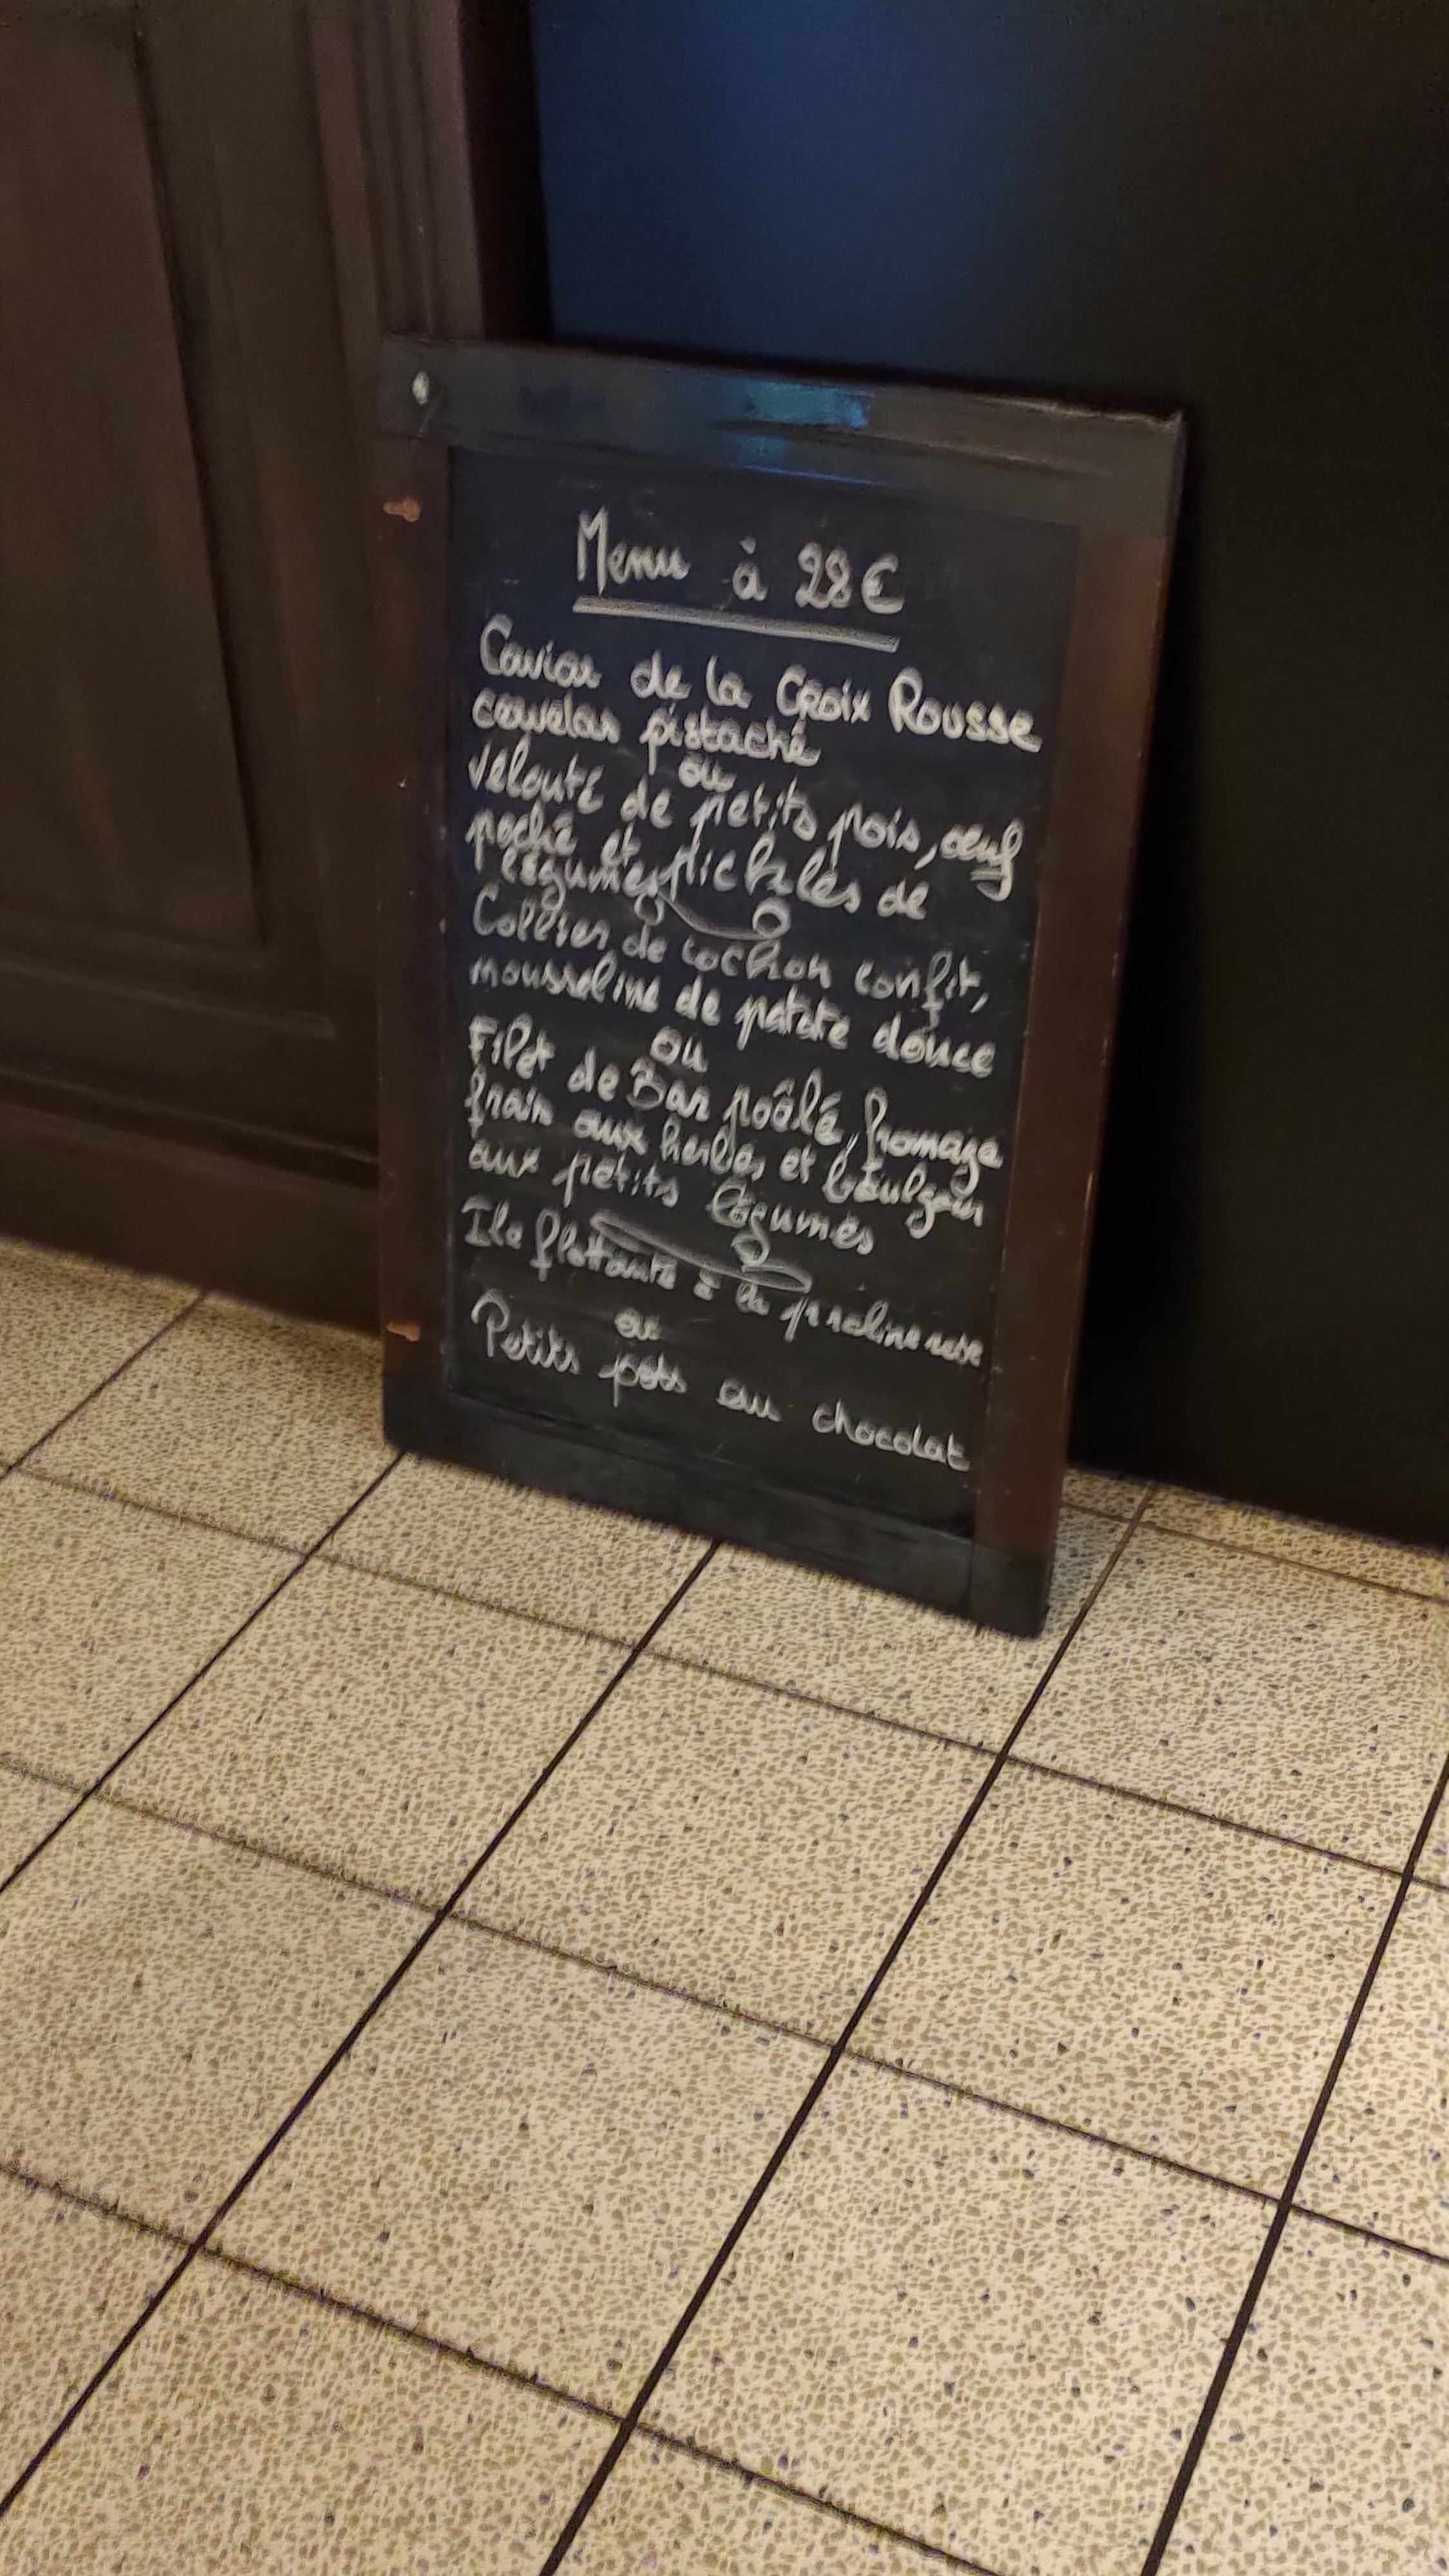 Menu à 28€
Caviar de la Croix Rousse
cervelas pistaché
ou
Velouté de petits pois, œuf
poché et pickles de
légumes
Collier de cochon confit,
mousseline de patate douce
ou
Filet de Bar poêlé, fromage
frais aux herbes et boulgour
aux petits légumes
Ile flottante à la praline rose
ou
Petits pots au chocolat